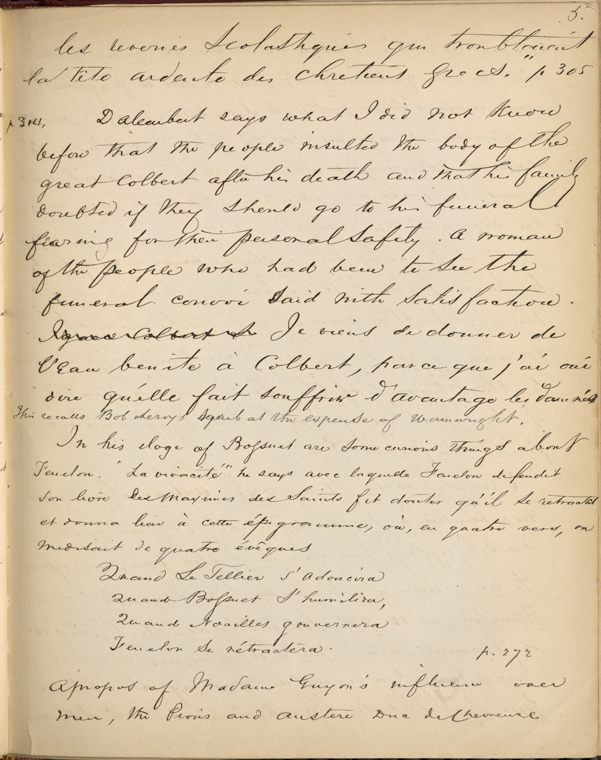 5.
les reveries Scolastiques qui troublaient
la tête ardente des Chretiens Grecs." p 305
p 304. Dalembert says what I did not know
before that the people insulted the body of the
great Colbert after his death and that his family
doubted if they should go to his funeral
fearing for their personal safety. A woman
of the people who had been to see the
funeral convoi said with satisfaction.
Je viens de donner de
l'Eau benite à Colbert, parce que j'ai oui
dire qu'elle fait souffrir d'avantage les damnés
This recalls Bob squib at the expense of Wainwright.
In his eloge of Bossuet are some curious things about
Fenelon. "La vivacité" he says avec laquelle Fenelon defendit
son livre des Maximes des Saints fit douter qu'il se retractat
et donna lieu à cette épigramme, où, en quatre vers, on
médisait de quatre évêques
Quand Le Tellier s'adoucira
Quand Bossuet s'humiliera,
Quand Noailles gouvernera
Fenelon se rétractera. p. 272
Apropos of Madame Guyon's influence over
men, the Pious and austere Duc de Chevreuse